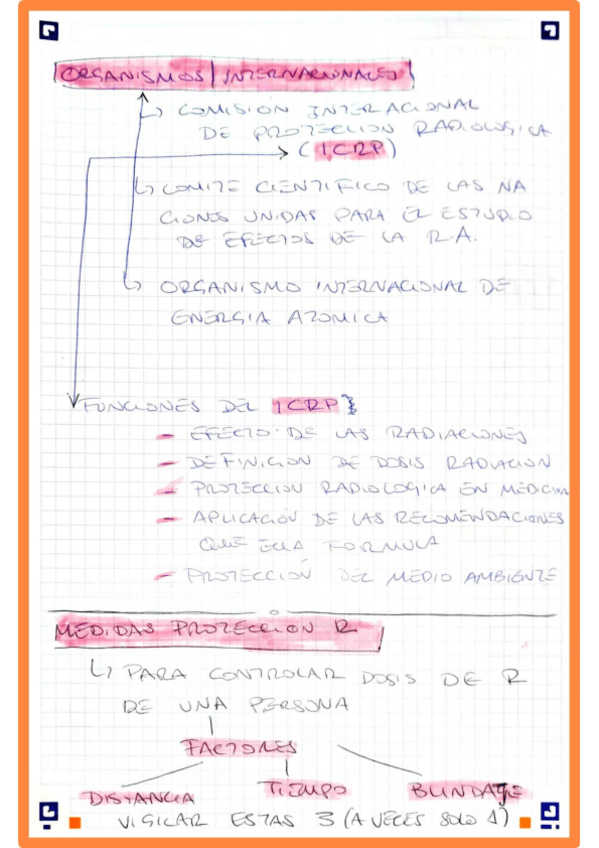 ORGANISMOS INTERNACIONALES
↳ COMISIÓN INTERACIONAL
DE PROTECCION RADIOLOGICA
(ICRP)
↳ COMITE CIENTIFICO DE LAS NA
CIONES UNIDAS PARA EL ESTUDIO
DE EFECTOS DE LA R.A.
↳ ORGANISMO INTERNACIONAL DE
ENERGIA ATOMICA
FUNCIONES DEL ICRP
- EFECTO DE LAS RADIACIONES
- DEFINICION DE DOSIS RADIACION
- PROTECCION RADIOLOGICA EN MEDICINA
- APLICACIÓN DE LAS RECOMENDACIONES
QUE ELLA FORMULA
- PROTECCIÓN DEL MEDIO AMBIENTE
MEDIDAS PROTECCION R
↳ PARA CONTROLAR DOSIS DE R
DE UNA PERSONA
FACTORES
DISTANCIA TIEMPO BLINDAJE
VIGILAR ESTAS 3 (A VECES SOLO 1)